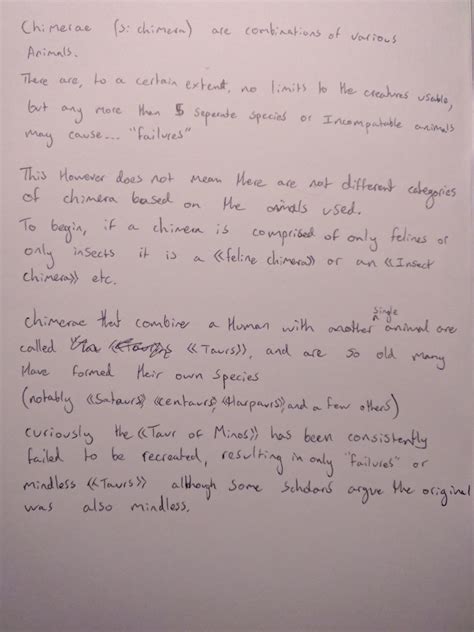 Chimerae (s: chimera) are combinations of various
Animals.
There are, to a certain extent, no limits to the creatures usable,
but any more than 5 seperate species or Incompatable animals
may cause... "failures"
This However does not mean there are not different categories
of chimera based on the animals used.
To begin, if a chimera is comprised of only felines or
only insects it is a «feline chimera» or an «Insect
chimera» etc.
chimerae that combine a Human with another single animal are
called «Taurs», and are so old many
Have formed their own species
(notably «Sataurs», «centaurs», «Harpaurs», and a few others)
curiously the «Taur of Minos» has been consistently
failed to be recreated, resulting in only "failures" or
mindless «Taurs» although some scholars argue the original
was also mindless.